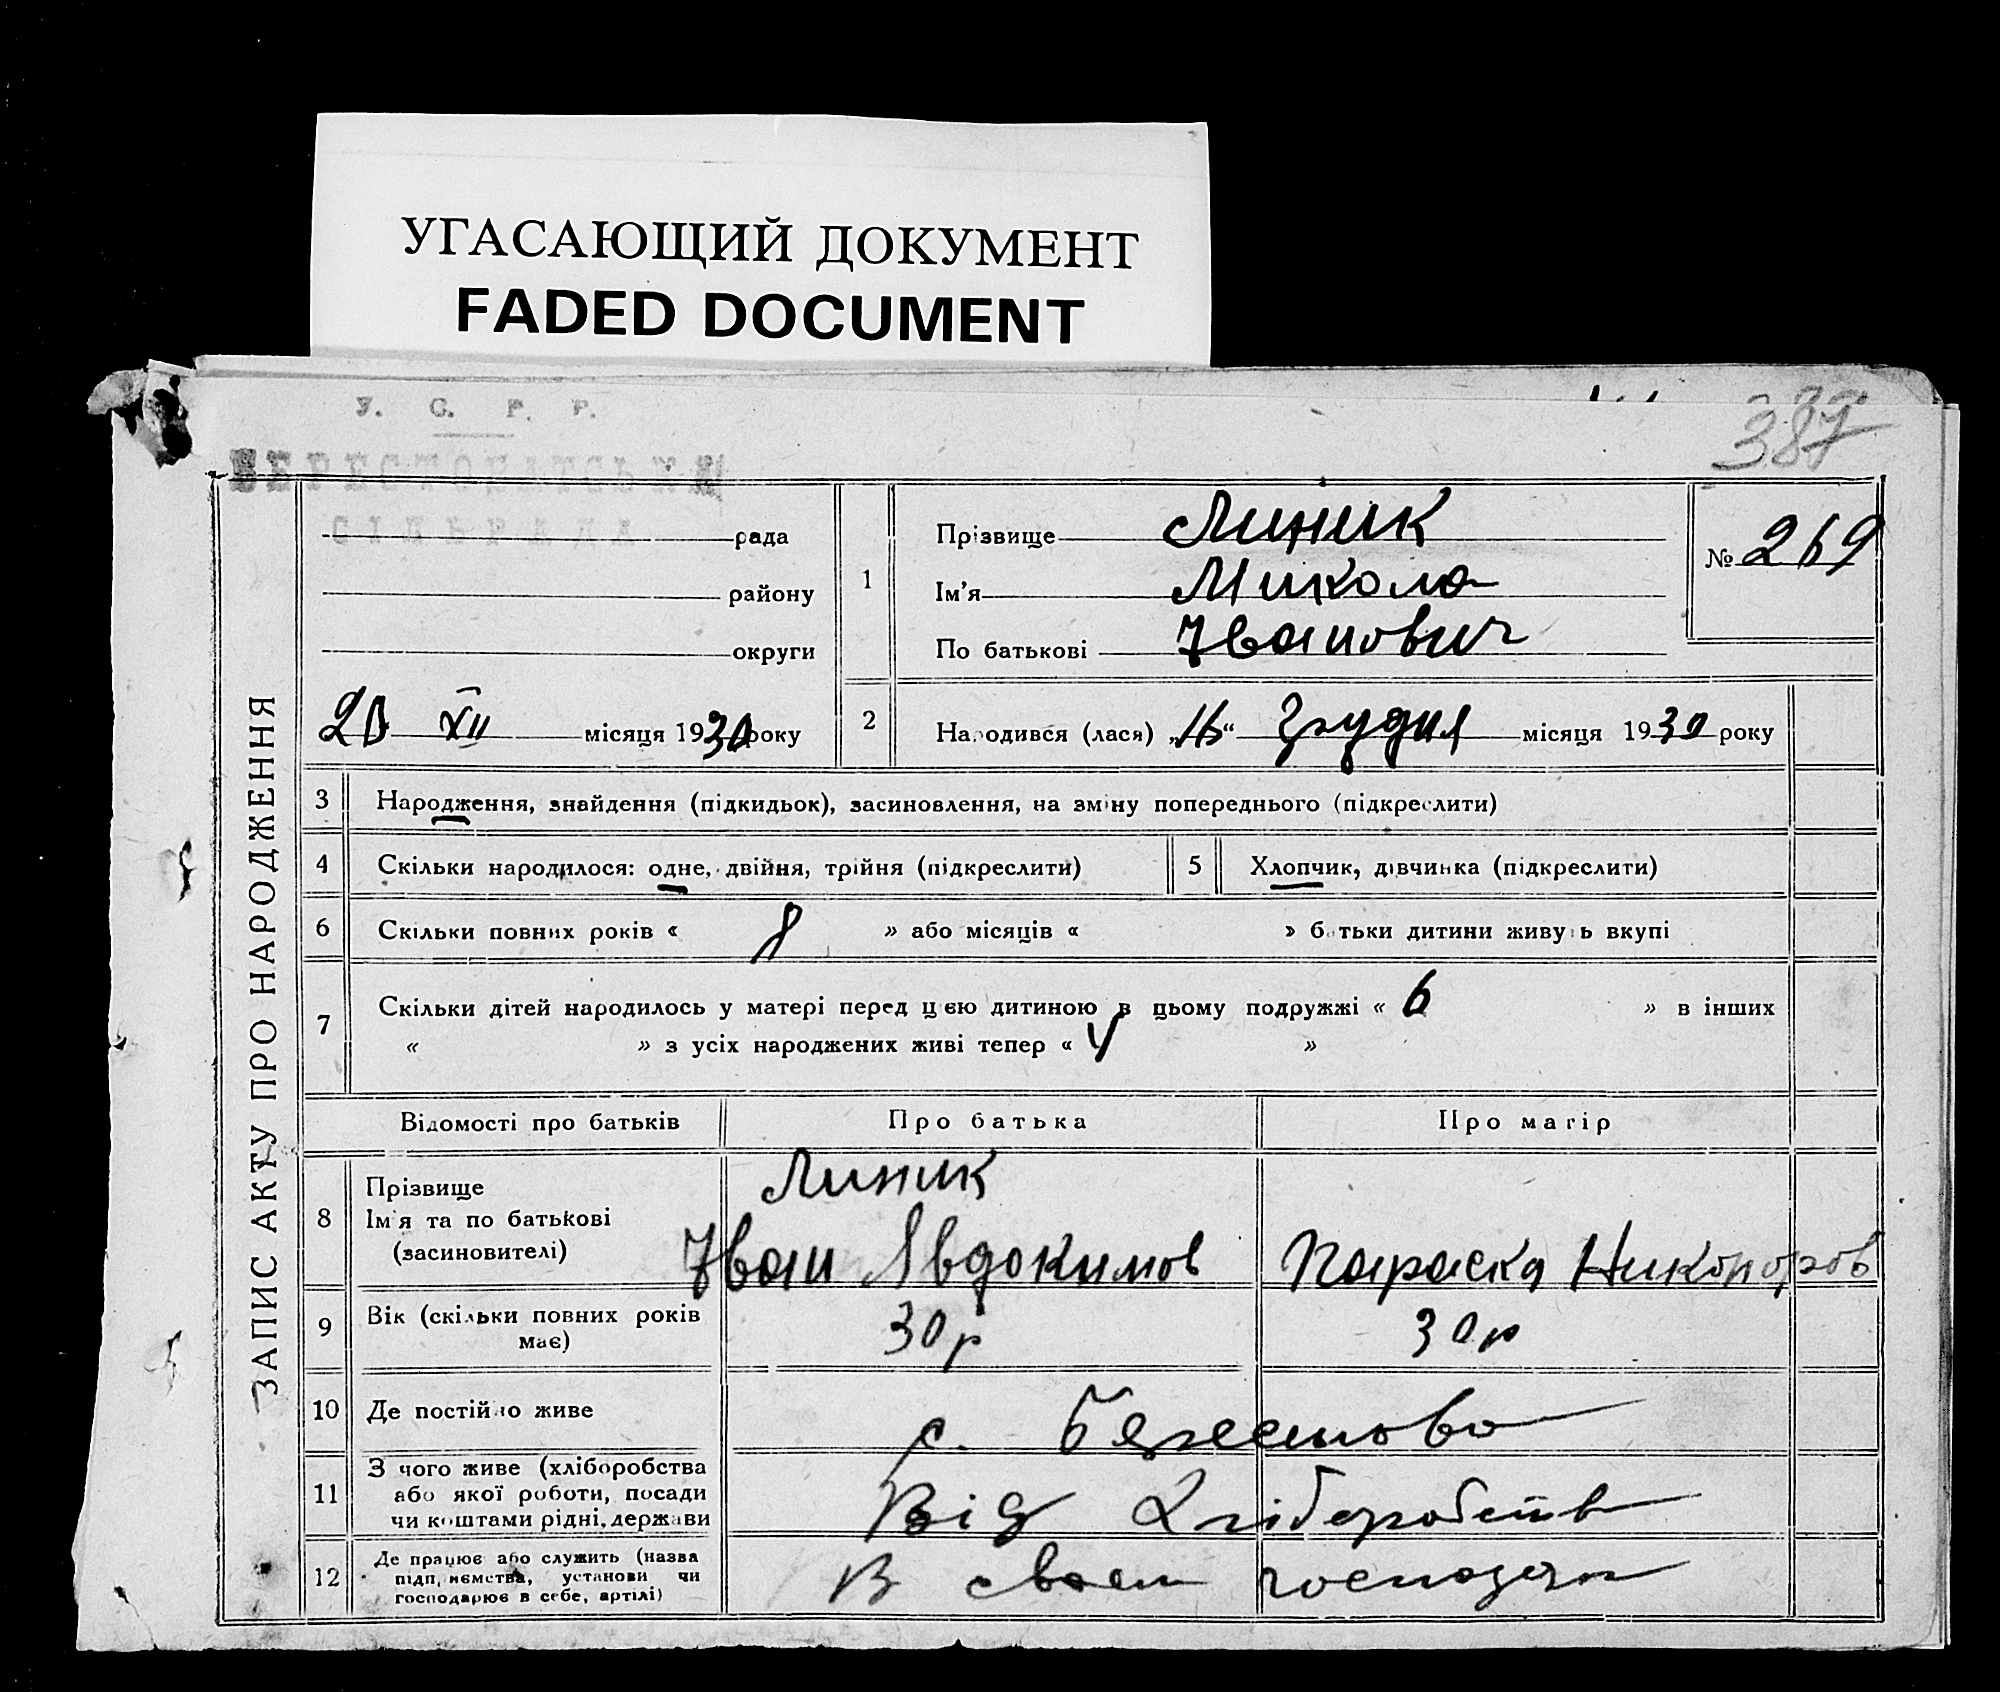 УГАСАЮЩИЙ ДОКУМЕНТ
FADED DOCUMENT
387
У. С. Р. Р.
СІЛЬРАДА
рада
району
округи
20 XII місяця 1930 року
ЗАПИС АКТУ ПРО НАРОДЖЕННЯ
1
Прізвище Линик
Ім'я Микола
По батькові Іванович
№ 269
2 Народився (лася) „16“ Грудня місяця 1930 року
3 Народження, знайдення (підкидьок), засиновлення, на зміну попереднього (підкреслити)
4 Скільки народилося: одне, двійня, трійня (підкреслити) 5 Хлопчик, дівчинка (підкреслити)
6 Скільки повних років « 8 » або місяців « » батьки дитини живуть вкупі
7 Скільки дітей народилось у матері перед цією дитиною в цьому подружжі « 6 » в інших
« » з усіх народжених живі тепер « 4 »
Відомості про батьків Про батька Про матір
8 Прізвище
Ім'я та по батькові
(засиновителі)
Линик
Іван Явдокимов
Параска Никопоров
9 Вік (скільки повних років
має)
30 р
30 р
10 Де постійно живе с. Берестово
11 З чого живе (хліборобства
або якої роботи, посади
чи коштами рідні, держави
Від Хліборобств
12 Де працює або служить (назва
підприємства, установи чи
господарює в себе, артілі)
В своем